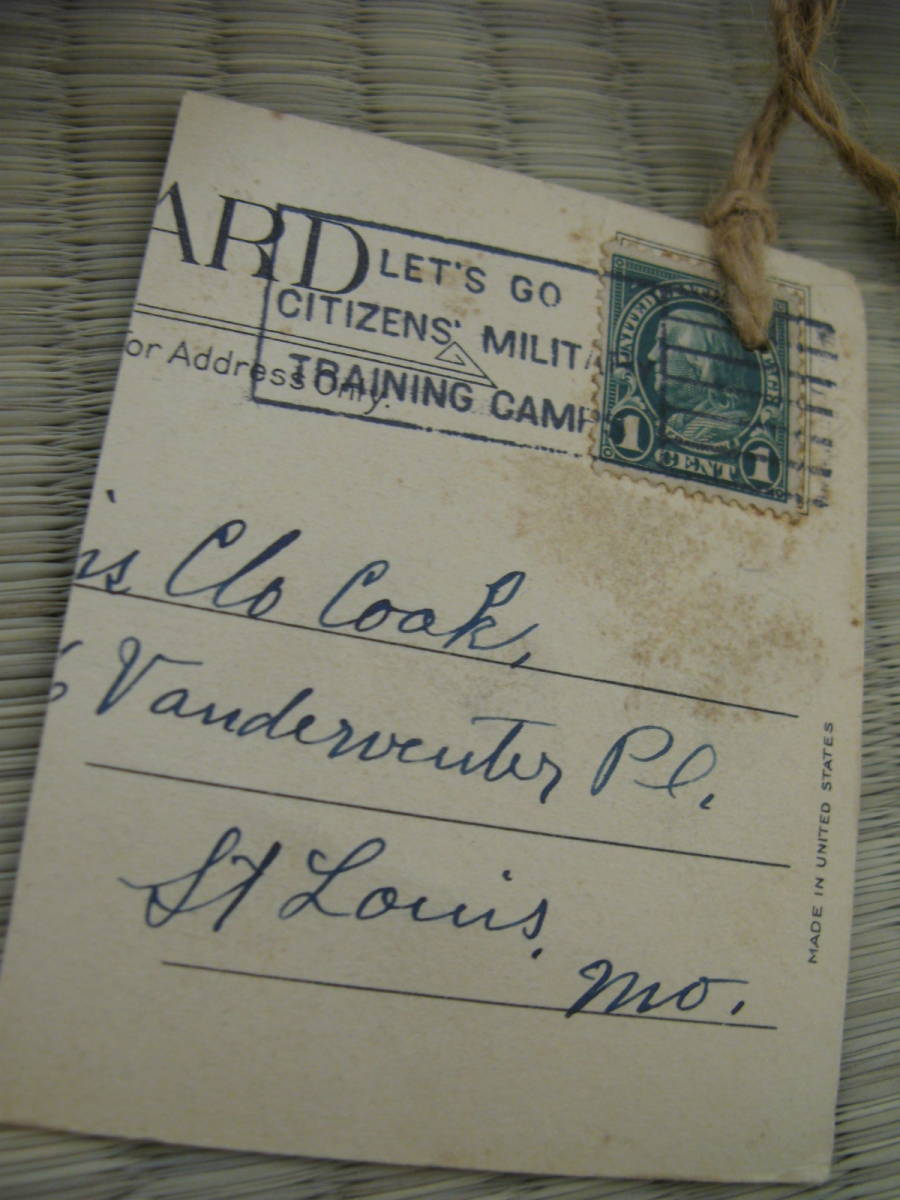 ARD
LET'S GO
CITIZENS' MILITA
TRAINING CAMP
or Address Only.
UNITED STATES
1 CENT 1
is Clo Cook,
6 Vanderventer Pl.
St Louis.
Mo.
MADE IN UNITED STATES